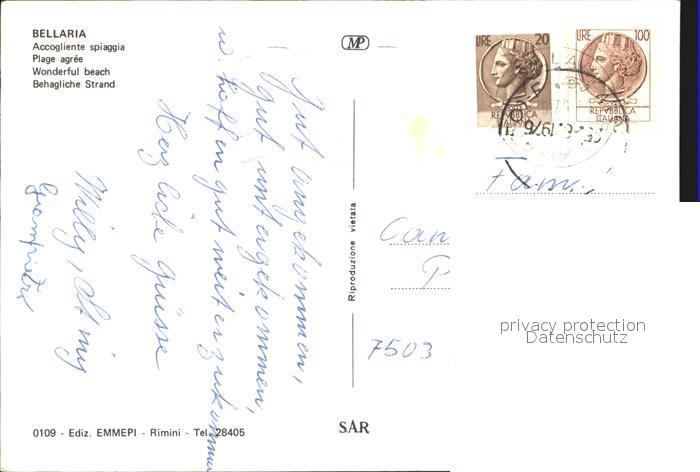 BELLARIA
Accogliente spiaggia
Plage agrée
Wonderful beach
Behagliche Strand
MP
LIRE 20
REPVBBLICA
ITALIANA
LIRE 100
REPVBBLICA
ITALIANA
1976
Gut angekommen,
gut untergekommen,
u. hoffen gut weiterzukommen
Herzliche Grüsse
Milly,
Riproduzione vietata
Fam.
7503
privacy protection
Datenschutz
0109 - Ediz. EMMEPI - Rimini - Tel. 28405
SAR